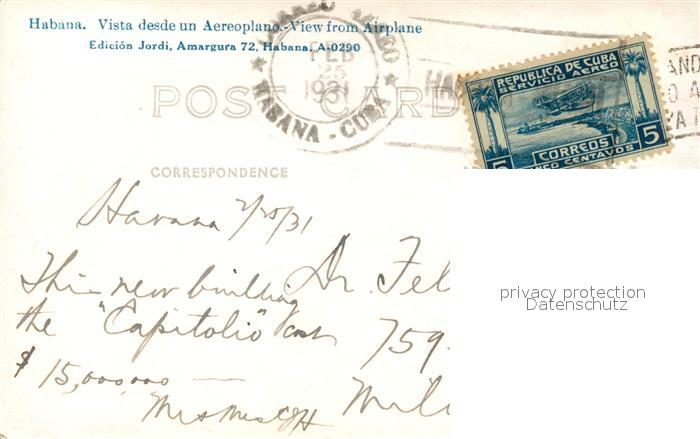 Habana. Vista desde un Aereoplano.-View from Airplane
Edición Jordi, Amargura 72, Habana, A-0290
CORREO AEREO
FEB
25
1931
HABANA - CUBA
REPUBLICA DE CUBA
SERVICIO AEREO
CORREOS
CINCO CENTAVOS
5 5
POST CARD
CORRESPONDENCE
Havana 2/25/31
This new building
the "Capitolio" cost
$ 15,000,000 —
Dr. Fel
759
Mil
privacy protection
Datenschutz